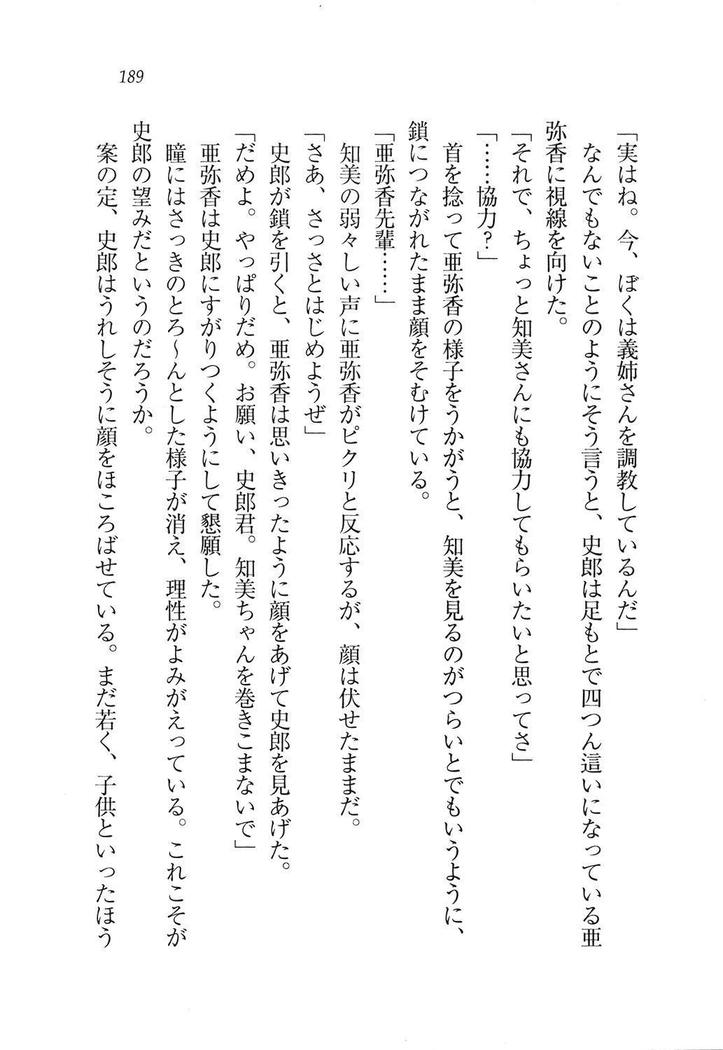 189
「実はね。今、ぼくは義姉さんを調教しているんだ」
なんでもないことのようにそう言うと、史郎は足もとで四つん這いになっている亜
弥香に視線を向けた。
「それで、ちょっと知美さんにも協力してもらいたいと思ってさ」
「……協力?」
首を捻って亜弥香の様子をうかがうと、知美を見るのがつらいとでもいうように、
鎖につながれたまま顔をそむけている。
「亜弥香先輩……」
知美の弱々しい声に亜弥香がピクリと反応するが、顔は伏せたままだ。
「さあ、さっさとはじめようぜ」
史郎が鎖を引くと、亜弥香は思いきったように顔をあげて史郎を見あげた。
「だめよ。やっぱりだめ。お願い、史郎君。知美ちゃんを巻きこまないで」
亜弥香は史郎にすがりつくようにして懇願した。
瞳にはさっきのとろ〜んとした様子が消え、理性がよみがえっている。これこそが
史郎の望みだというのだろうか。
案の定、史郎はうれしそうに顔をほころばせている。まだ若く、子供といったほう